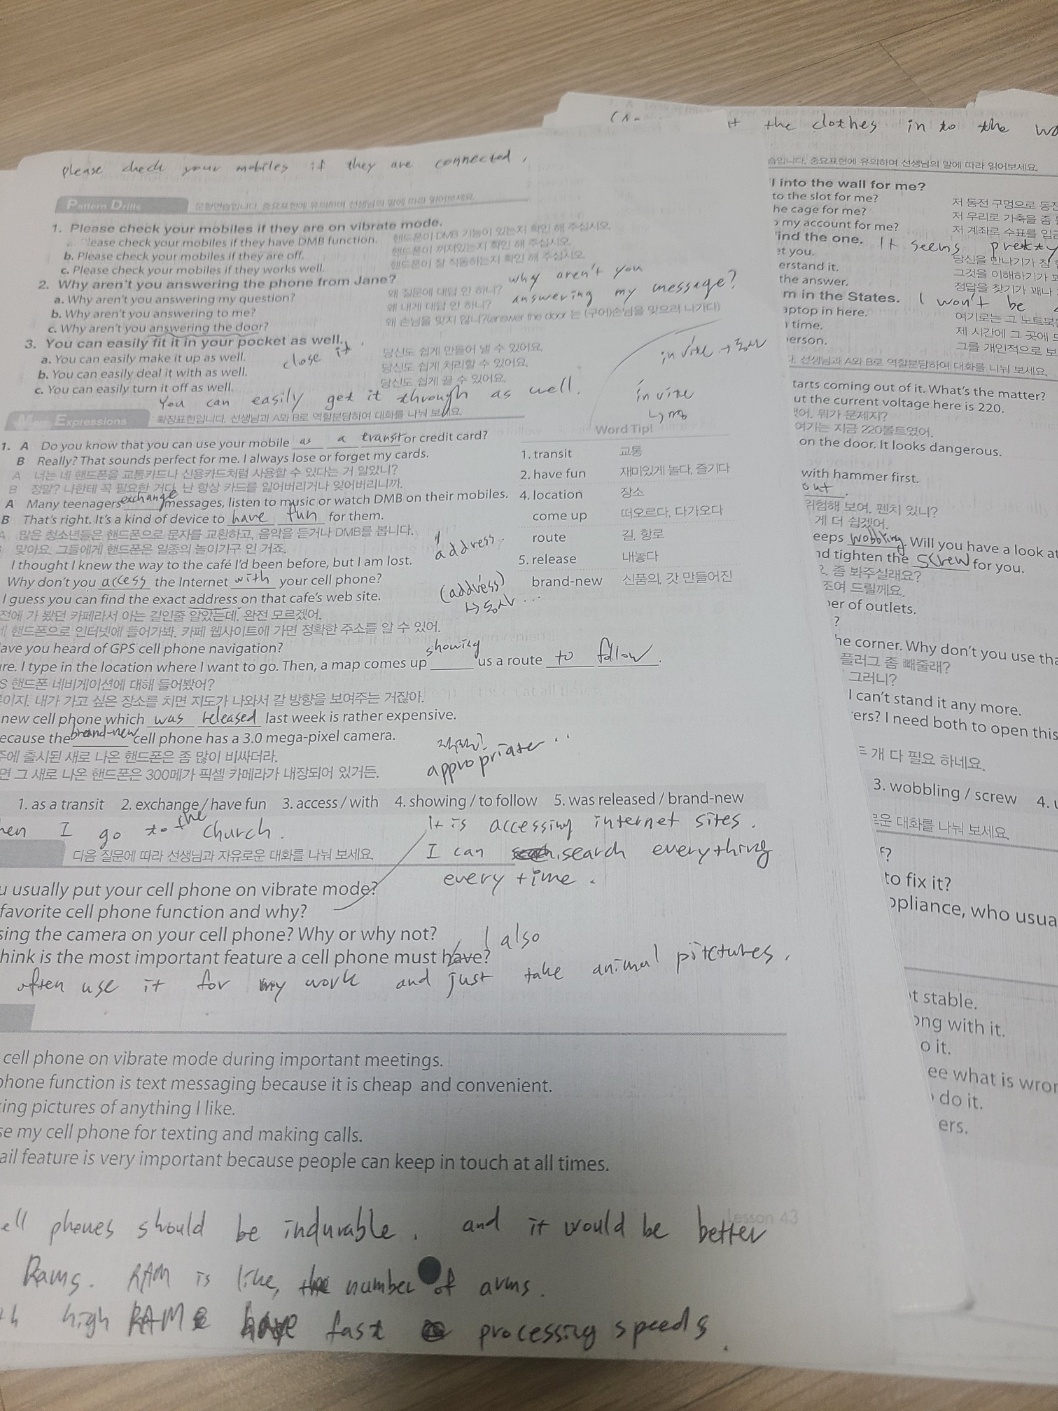 please check your mobiles if they are connected.
Pattern Drills
1. Please check your mobiles if they are on vibrate mode.
lease check your mobiles if they have DMB function. 핸드폰이 DMB 기능이 있는지 확인 해 주십시오.
b. Please check your mobiles if they are off. 핸드폰이 꺼져있는지 확인 해 주십시오.
c. Please check your mobiles if they works well. 핸드폰이 잘 작동하는지 확인 해 주십시오.
2. Why aren't you answering the phone from Jane? why aren't you
a. Why aren't you answering my question? 왜 질문에 대답 안 하니? answering my message?
b. Why aren't you answering to me? 왜 내게 대답 안 하니?
c. Why aren't you answering the door? 왜 손님을 맞지 않니?(answer the door 는 (구어)손님을 맞으러 나가다)
3. You can easily fit it in your pocket as well.
a. You can easily make it up as well. close it 당신도 쉽게 만들어 낼 수 있어요.
b. You can easily deal it with as well. 당신도 쉽게 처리할 수 있어요.
c. You can easily turn it off as well. 당신도 쉽게 끌 수 있어요.
You can easily get it through as well.
invite
More Expressions 확장표현입니다. 선생님과 A와 B로 역할분담하여 대화를 나눠 보세요.
1. A Do you know that you can use your mobile as a transit or credit card?
B Really? That sounds perfect for me. I always lose or forget my cards.
A 너는 네 핸드폰을 교통카드나 신용카드처럼 사용할 수 있다는 거 알았니?
B 정말? 나한테 꼭 필요한 거다. 난 항상 카드를 잃어버리거나 잊어버리니까.
A Many teenagers exchange messages, listen to music or watch DMB on their mobiles.
B That's right. It's a kind of device to have fun for them.
많은 청소년들은 핸드폰으로 문자를 교환하고, 음악을 듣거나 DMB를 봅니다.
맞아요. 그들에게 핸드폰은 일종의 놀이기구 인 거죠.
I thought I knew the way to the café I'd been before, but I am lost.
Why don't you access the Internet with your cell phone?
I guess you can find the exact address on that cafe's web site.
전에 가 봤던 카페라서 아는 길인줄 알았는데, 완전 모르겠어.
핸드폰으로 인터넷에 들어가봐. 카페 웹사이트에 가면 정확한 주소를 알 수 있어.
ave you heard of GPS cell phone navigation?
re. I type in the location where I want to go. Then, a map comes up showing us a route to follow.
S 핸드폰 네비게이션에 대해 들어봤어?
론이지. 내가 가고 싶은 장소를 치면 지도가 나와서 갈 방향을 보여주는 거잖아.
new cell phone which was released last week is rather expensive.
ecause the brand-new cell phone has a 3.0 mega-pixel camera.
주에 출시된 새로 나온 핸드폰은 좀 많이 비싸더라.
면 그 새로 나온 핸드폰은 300메가 픽셀 카메라가 내장되어 있거든.
Word Tip!
1. transit 교통
2. have fun 재미있게 놀다, 즐기다
4. location 장소
come up 떠오르다, 다가오다
route 길, 항로
5. release 내놓다
brand-new 신품의, 갓 만들어진
address
(address)
appropriate
1. as a transit 2. exchange / have fun 3. access / with 4. showing / to follow 5. was released / brand-new
hen I go to the church.
It is accessing internet sites.
다음 질문에 따라 선생님과 자유로운 대화를 나눠 보세요.
I can search everything
every time.
u usually put your cell phone on vibrate mode?
favorite cell phone function and why?
sing the camera on your cell phone? Why or why not?
I also
hink is the most important feature a cell phone must have?
often use it for my work and just take animal pitctures.
cell phone on vibrate mode during important meetings.
phone function is text messaging because it is cheap and convenient.
ing pictures of anything I like.
se my cell phone for texting and making calls.
ail feature is very important because people can keep in touch at all times.
Lesson 43
ell phones should be indurable. and it would be better
Rams. RAM is like, the number of arms.
high RAMs have fast processing speeds.
the clothes in to the
습입니다. 중요표현에 유의하며 선생님의 말에 따라 읽어보세요.
l into the wall for me?
to the slot for me? 저 동전 구멍으로 동전
he cage for me? 저 우리로 가축을 좀
o my account for me? 저 계좌로 수표를 입금
ind the one. It seems pretty
et you. 당신을 만나기가 참
erstand it. 그것을 이해하기가
the answer. 정답을 찾기가 꽤나
rn in the States. I won't be
aptop in here. 여기로는 그 노트북을
time. 제 시간에 그 곳에
erson. 그를 개인적으로
선생님과 A와 B로 역할분담하여 대화를 나눠 보세요.
tarts coming out of it. What's the matter?
ut the current voltage here is 220.
있어. 뭐가 문제지?
여기는 지금 220볼트였어.
on the door. It looks dangerous.
with hammer first.
out.
위험해 보여. 펜치 있니?
게 더 쉽겠어.
eeps wobbling. Will you have a look at
nd tighten the screw for you.
좀 봐주실래요?
조여 드릴께요.
er of outlets.
?
he corner. Why don't you use tha
플러그 좀 빼줄래?
그러니?
I can't stand it any more.
ers? I need both to open this
개 다 필요 하네요.
3. wobbling / screw 4.
로운 대화를 나눠 보세요.
?
to fix it?
ppliance, who usua
t stable.
ong with it.
o it.
ee what is wron
do it.
ers.